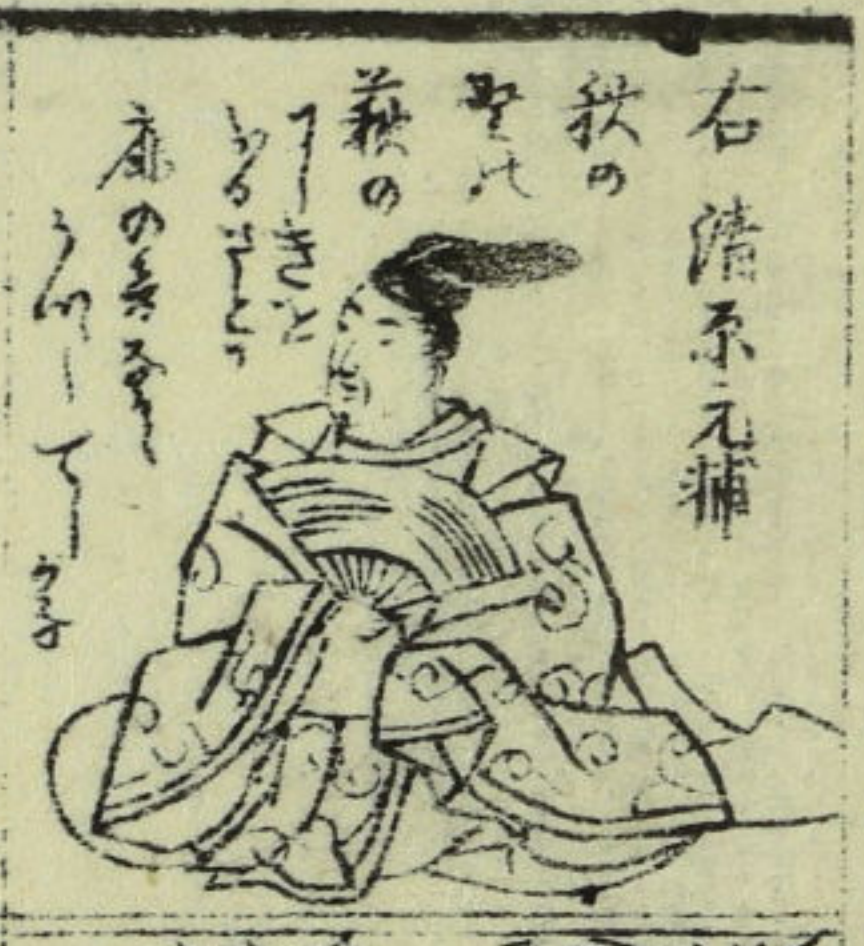 右 清原元輔
秋の
野の
萩の
にしきを
ふるさとに
鹿の音なから
うつしてしかな